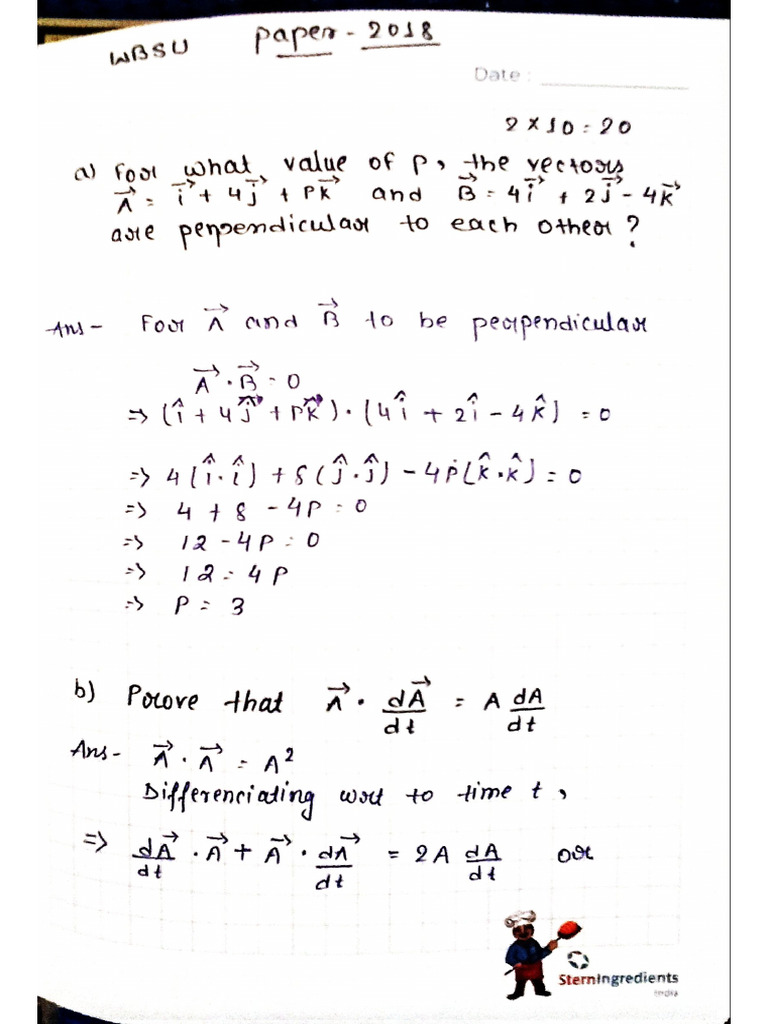 WBSU Paper - 2018
Date :
2 × 10 = 20
a) For what value of P, the vectors
A⃗ = i⃗ + 4j⃗ + Pk⃗ and B⃗ = 4i⃗ + 2j⃗ - 4k⃗
are perpendicular to each other?
Ans - For A⃗ and B⃗ to be perpendicular
A⃗ · B⃗ = 0
=> (î + 4ĵ + Pk̂) · (4î + 2î - 4k̂) = 0
=> 4(î · î) + 8(ĵ · ĵ) - 4P(k̂ · k̂) = 0
=> 4 + 8 - 4P = 0
=> 12 - 4P = 0
=> 12 = 4P
=> P = 3
b) Prove that A⃗ · dA⃗/dt = A dA/dt
Ans - A⃗ · A⃗ = A²
Differenciating wrt to time t,
=> dA⃗/dt · A⃗ + A⃗ · dA⃗/dt = 2A dA/dt or
SternIngredients
India